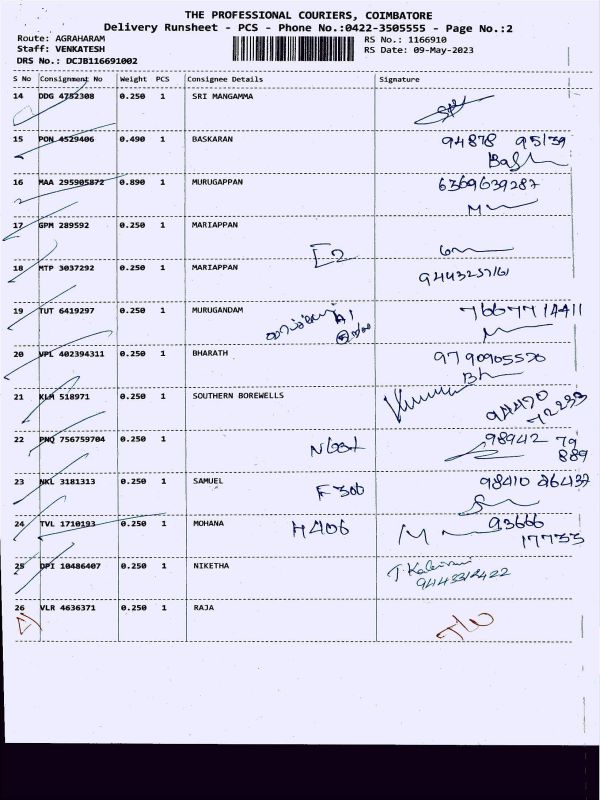 THE PROFESSIONAL COURIERS, COIMBATORE
Delivery Runsheet - PCS - Phone No.:0422-3505555 - Page No.:2
Route: AGRAHARAM RS No.: 1166910
Staff: VENKATESH RS Date: 09-May-2023
DRS No.: DCJB116691002
S No Consignment No Weight PCS Consignee Details Signature
14 DDG 4752308 0.250 1 SRI MANGAMMA
15 PON 4529406 0.490 1 BASKARAN 94878 95139
16 MAA 295905872 0.890 1 MURUGAPPAN 6369639287
M
17 GPM 289592 0.250 1 MARIAPPAN
E2
18 MTP 3037292 0.250 1 MARIAPPAN
19 TUT 6419297 0.250 1 MURUGANDAM A1 76677 14411
20 VPL 402394311 0.250 1 BHARATH 9790905520
21 KLM 518971 0.250 1 SOUTHERN BOREWELLS
22 PNQ 756759704 0.250 1 98942 79
889
23 NKL 3181313 0.250 1 SAMUEL F 306 98410 26437
24 TVL 1710193 0.250 1 MOHANA H 406 M 93666
17733
25 DPI 10486407 0.250 1 NIKETHA
26 VLR 4636371 0.250 1 RAJA